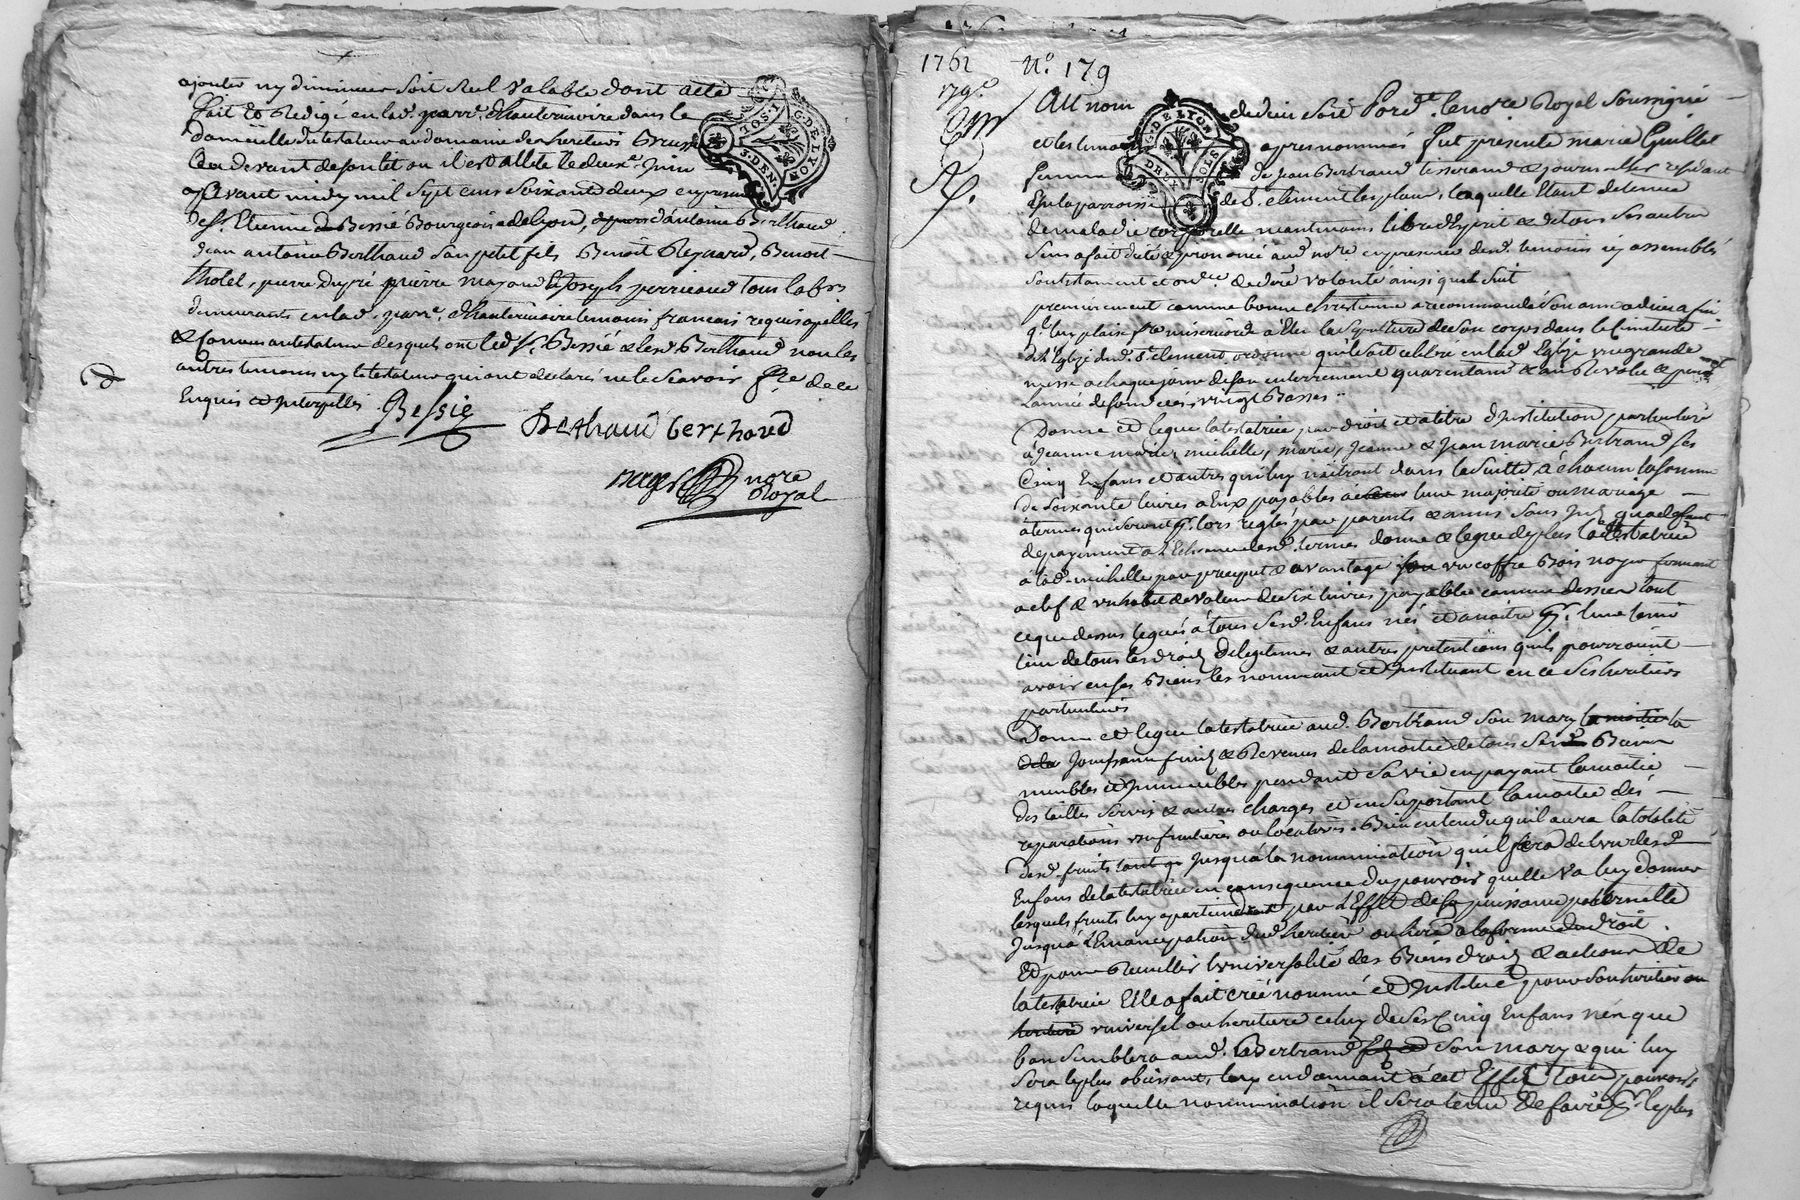 ajouter ny diminuer soit seul valable dont acte
fait et Redigé en lad. parr. d'hauterivoire dans le
Domicille du testateur au domaine des heritiers
au devant
avant midy mil sept cens soixante deux en presence
de Sr. Etienne Bessié Bourgeois de Lyon, d'antoine Berthaud
Jean antoine Berthaud son petit fils Benoit Reynard, Benoit
tholel, pierre Dupré pierre mazand & Joseph perricaud tous labrs
demeurants en lad. parr. d'hauterivoire temoins francais requis apellés
& connus au testateur desquels ont led. Sr. Bessié & lesd. Berthaud non les
autres temoins ny le testateur qui ont declarés ne le Scavoir fre de ce
Enquis et Interpellés
Bessié
Berthaud berthaud
nore
Royal
G.DE.LYON
3.S.DEN.
1762
N.º 179
179e
Au nom de dieu Soit Pard.t le nore Royal Soussigné
et les temoins apres nommés fut presente marie Guillet
femme de Jean Bertrand tisserand & journallier residant
En la parroisse de S. clement les places, laquelle Etant detenue
de maladie corporelle neantmoins libre d'Esprit & de tous ses autres
Sens a fait dicté & prononcé aud. nore en presence desd. temoins icy assemblés
Son testament et ord.ce de dere volonté ainsi quil suit
premierement comme bonne chretienne a recommandé son ame a dieu afin
q.l luy plaise fre misericord a Elu la Sepulture de son corps dans le cimitiere
de l'Eglize dud. St. clement, ordonne quil soit celebré en lad. Eglize une grande
messe a chaque jour de son enterrement quarentane & an Revolu & pendt
L'année de son deces vingt Basses
Donne et legue la testatrice par droit et a titre d'Institution particuliere
à Jeanne marie, michelle, marie, Jeanne & Jean marie Bertrand ses
Cinq Enfans et autres qui luy naitront dans la suitte, à chacun la somme
de soixante livres a Eux payables a leur majorité ou mariage
a termes qui seront pr. lors reglés par parents & amis sans Int. qu'a deffaut
de payement a l'Echeance desd. termes donne & legue de plus la testatrice
à lad. michelle par preciput & avantage un coffre Bois noyer fermant
a clef & un habit de valeur de dix livres payable comme dessus tout
ce que dessus legués à tous sesd. Enfans nés et a naitre pr. leur tenir
lieu de tous les droits de legitimes & autres pretentions quils pourroint
avoir en ses Biens les nommant et Instituant en ce Ses heritiers
particuliers
Donne et legue la testatrice aud. Bertrand son mary la moitié la
de la Jouissance fruits & Revenus de la moitié de tous Sesd. Biens
meubles et Immeubles pendant sa vie en payant la moitié
des tailles Servis & autres charges et en Suportant la moitié des
reparations usufruitieres ou locatives. Bien entendu quil aura la totalité
desd. fruits Jusqu'à la nommination quil fera de l'un desd.
Enfans de la testatrice en consequence du pouvoir quelle va luy donner
lesquels fruits luy apartiendront par l'Effet de sa puissance paternelle
Jusqu'à l'Emancipation dud. heritier ou heritiere a la forme du droit
Et pour Recuillir l'universalité des Biens droits & actions de
la testatrice Elle a fait créé nommé et Institué pour son heritier ou
heritiere universel ou heritiere celuy de ses Cinq Enfans nés que
bon Semblera aud. Bertrand son mary & qui luy
sera le plus obeissant, luy en donnant à cet Effet tous pouvoirs
requis laquelle nommination il sera tenu de faire pr. le plus
G.DE.LYON